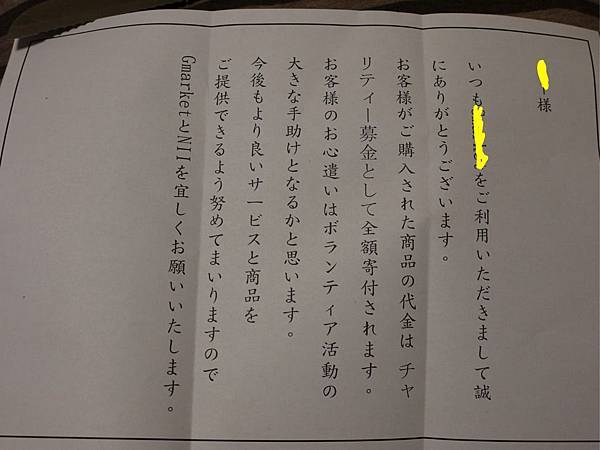 様
いつも をご利用いただきまして誠
にありがとうございます。
お客様がご購入された商品の代金は チャ
リティー募金として全額寄付されます。
お客様のお心遣いはボランティア活動の
大きな手助けとなるかと思います。
今後もより良いサービスと商品を
ご提供できるよう努めてまいりますので
GmarketとNIIを宜しくお願いいたします。